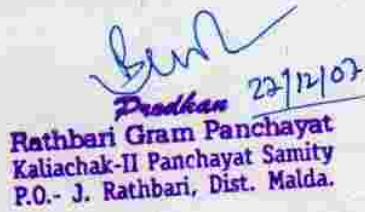 22/12/07
Prodhan
Rathbari Gram Panchayat
Kaliachak-II Panchayat Samity
P.O.- J. Rathbari, Dist. Malda.